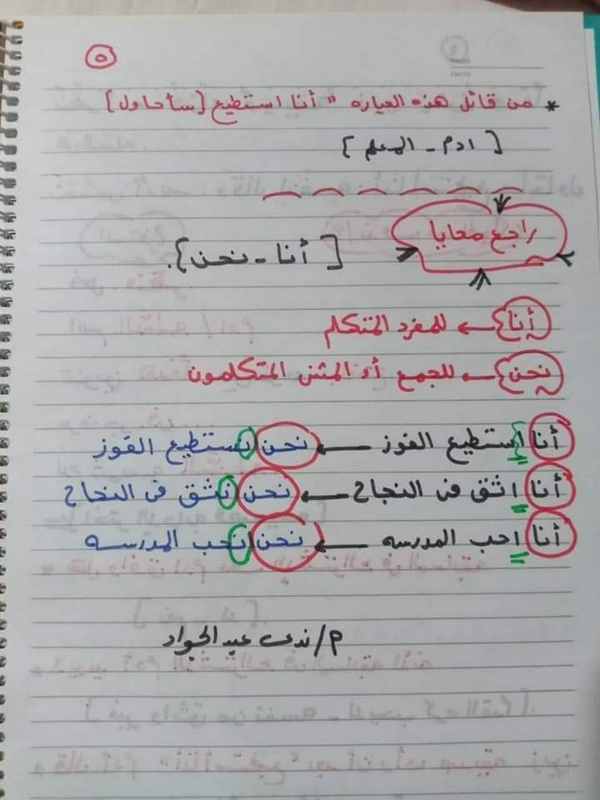 ٥
* من قائل هذه العباره " أنا استطيع [سأحاول]
[ ادم - المعلم ]
راجع معايا
[ أنا - نحن ].
أنا ← للمفرد المتكلم
نحن ← للجمع أو المثنى المتكلمون
أنا استطيع الفوز ← نحن نستطيع الفوز
أنا اثق فى النجاح ← نحن نثق فى النجاح
أنا احب المدرسه ← نحن نحب المدرسه
م/ ندى عبد الجواد